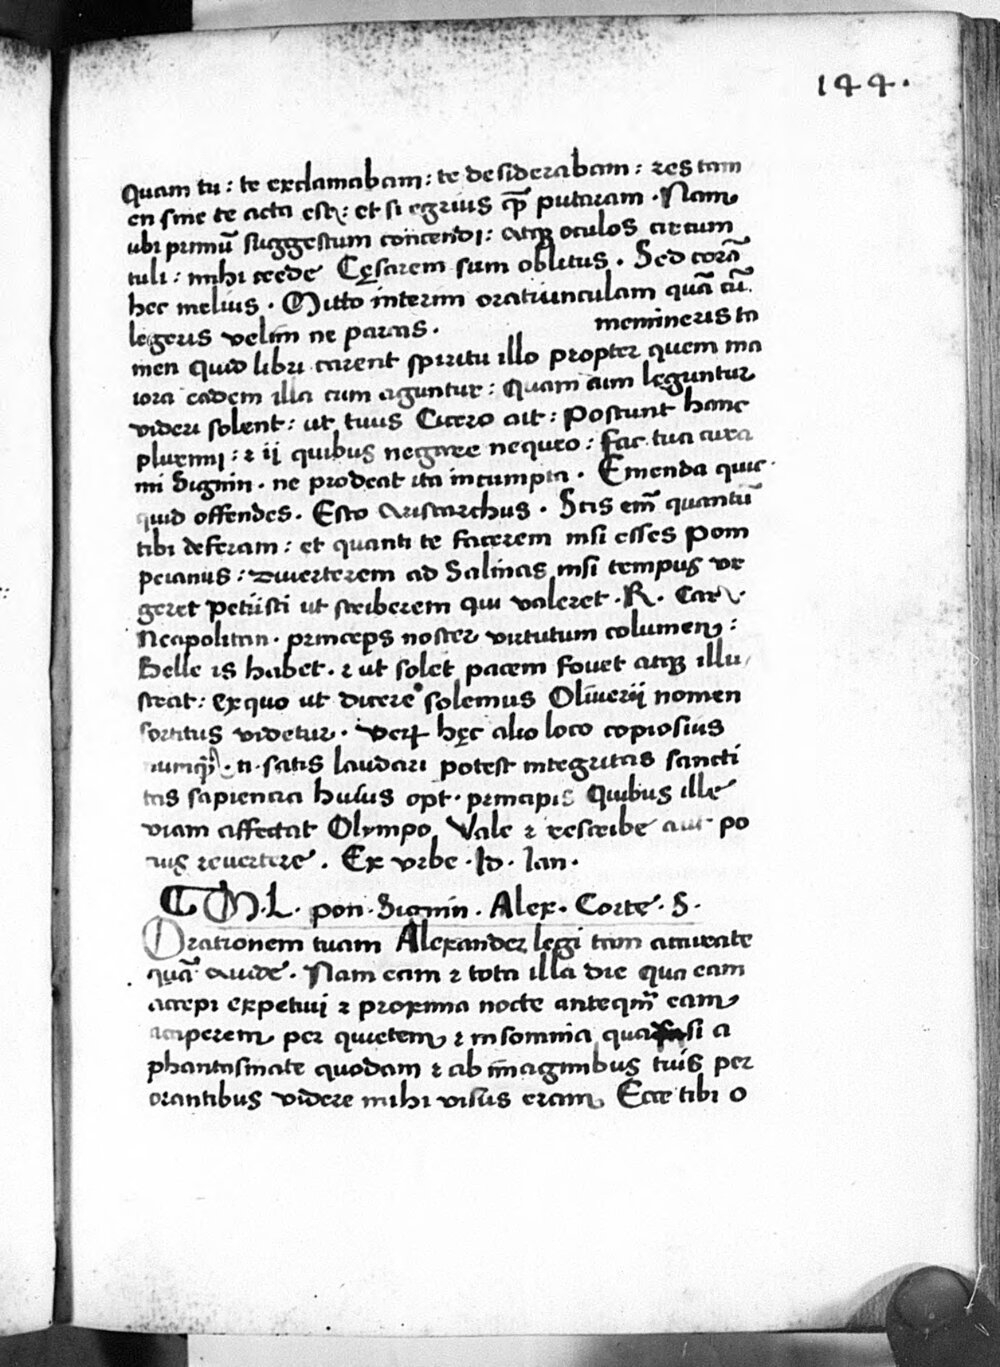 144.
Quam tu: te exclamabam: te desiderabam: res tam
en sine te acta est: et si egrius qͫ putaram. Nam
ubi primū suggestum concendi: atqꝫ oculos circum
tuli: mihi crede Cęsarem sum oblitus. Sed corā
hec melius. Mitto interim oratiunculam quā cū
legeris velim ne paras. memineris ta
men quid libri carent spiritu illo propter quem ma
iora eadem illa cum aguntur: Quam cum leguntur
videri solent: ut tuus Cicero ait: Poscunt hanc
plurimi: ⁊ ij quibus negare nequeo: fac tua cura
mi Signin. ne prodeat ita incumpta. Emenda quic
quid offendes. Esto Aristarchus. Scis em̄ quantū
tibi deferam: et quanti te facerem nisi esses Pom
peianus: Diverterem ad Salinas nisi tempus ur
geret Petiisti ut scriberem qui valeret. R. Car.
Neapolitan. princeps noster virtutum columen:
Belle is habet. ⁊ ut solet pacem fovet atqꝫ illu
strat: ex quo ut dicere solemus Oliverij nomen
sortitus videtur. Verꝝ hęc alio loco copiosius
nunqͣ. n. satis laudari potest integritas sancti
tas sapiencia huius opt. principis Quibus ille
viam affectat Olympo Vale ⁊ rescribe aut po
tius revertere. Ex urbe. Id. Ian.
M. L. pon. Signin. Alex. Corte. S.
Orationem tuam Alexander legi tam accurate
quā avide. Nam eam ⁊ tota illa die qua eam
accepi expetivi ⁊ proxima nocte anteqm̄ eam
acciperem per quietem ⁊ insomnia quasi a
phantasmate quodam ⁊ ab imaginibus tuis per
orantibus videre mihi visus eram. Ecce tibi o